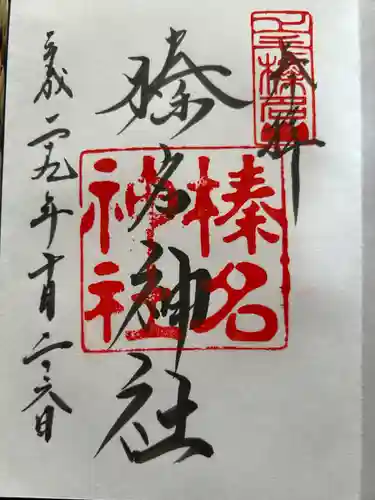 奉拝
榛名神社
榛名
神社
平成二十九年十月二十六日